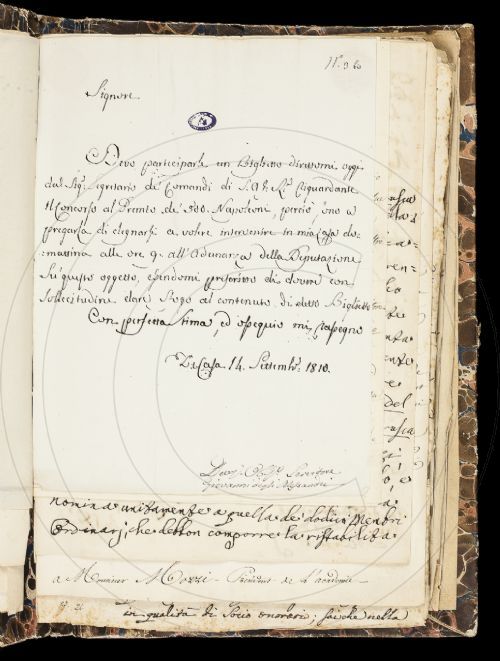 N. 36
Signore.
Devo participarle un Biglietto direttomi oggi
dal Sig. Segretario de' Comandi di S.A.I. Riguardante
il Concorso al Premio de' 500. Napoleoni, perciò sono a
pregarla di degnarsi a volere intervenire in mia Casa do-
mattina alle ore 9. all'Adunanza della Deputazione
su questo oggetto, essendomi prescritto di dovere con
sollecitudine dare sfogo al contenuto di detto Biglietto
Con perfetta stima, ed ossequio mi rassegno
Di Casa 14. Settemb. 1810.
Servitore
Giovanni degli Alessandri
nomina unitamente a quella de' dodici Membri
Ordinarj, che debbon comporre la ristabilita
a Monsieur Mozzi - Président de l'académie -
in qualità di Socio onorario; fa che nella